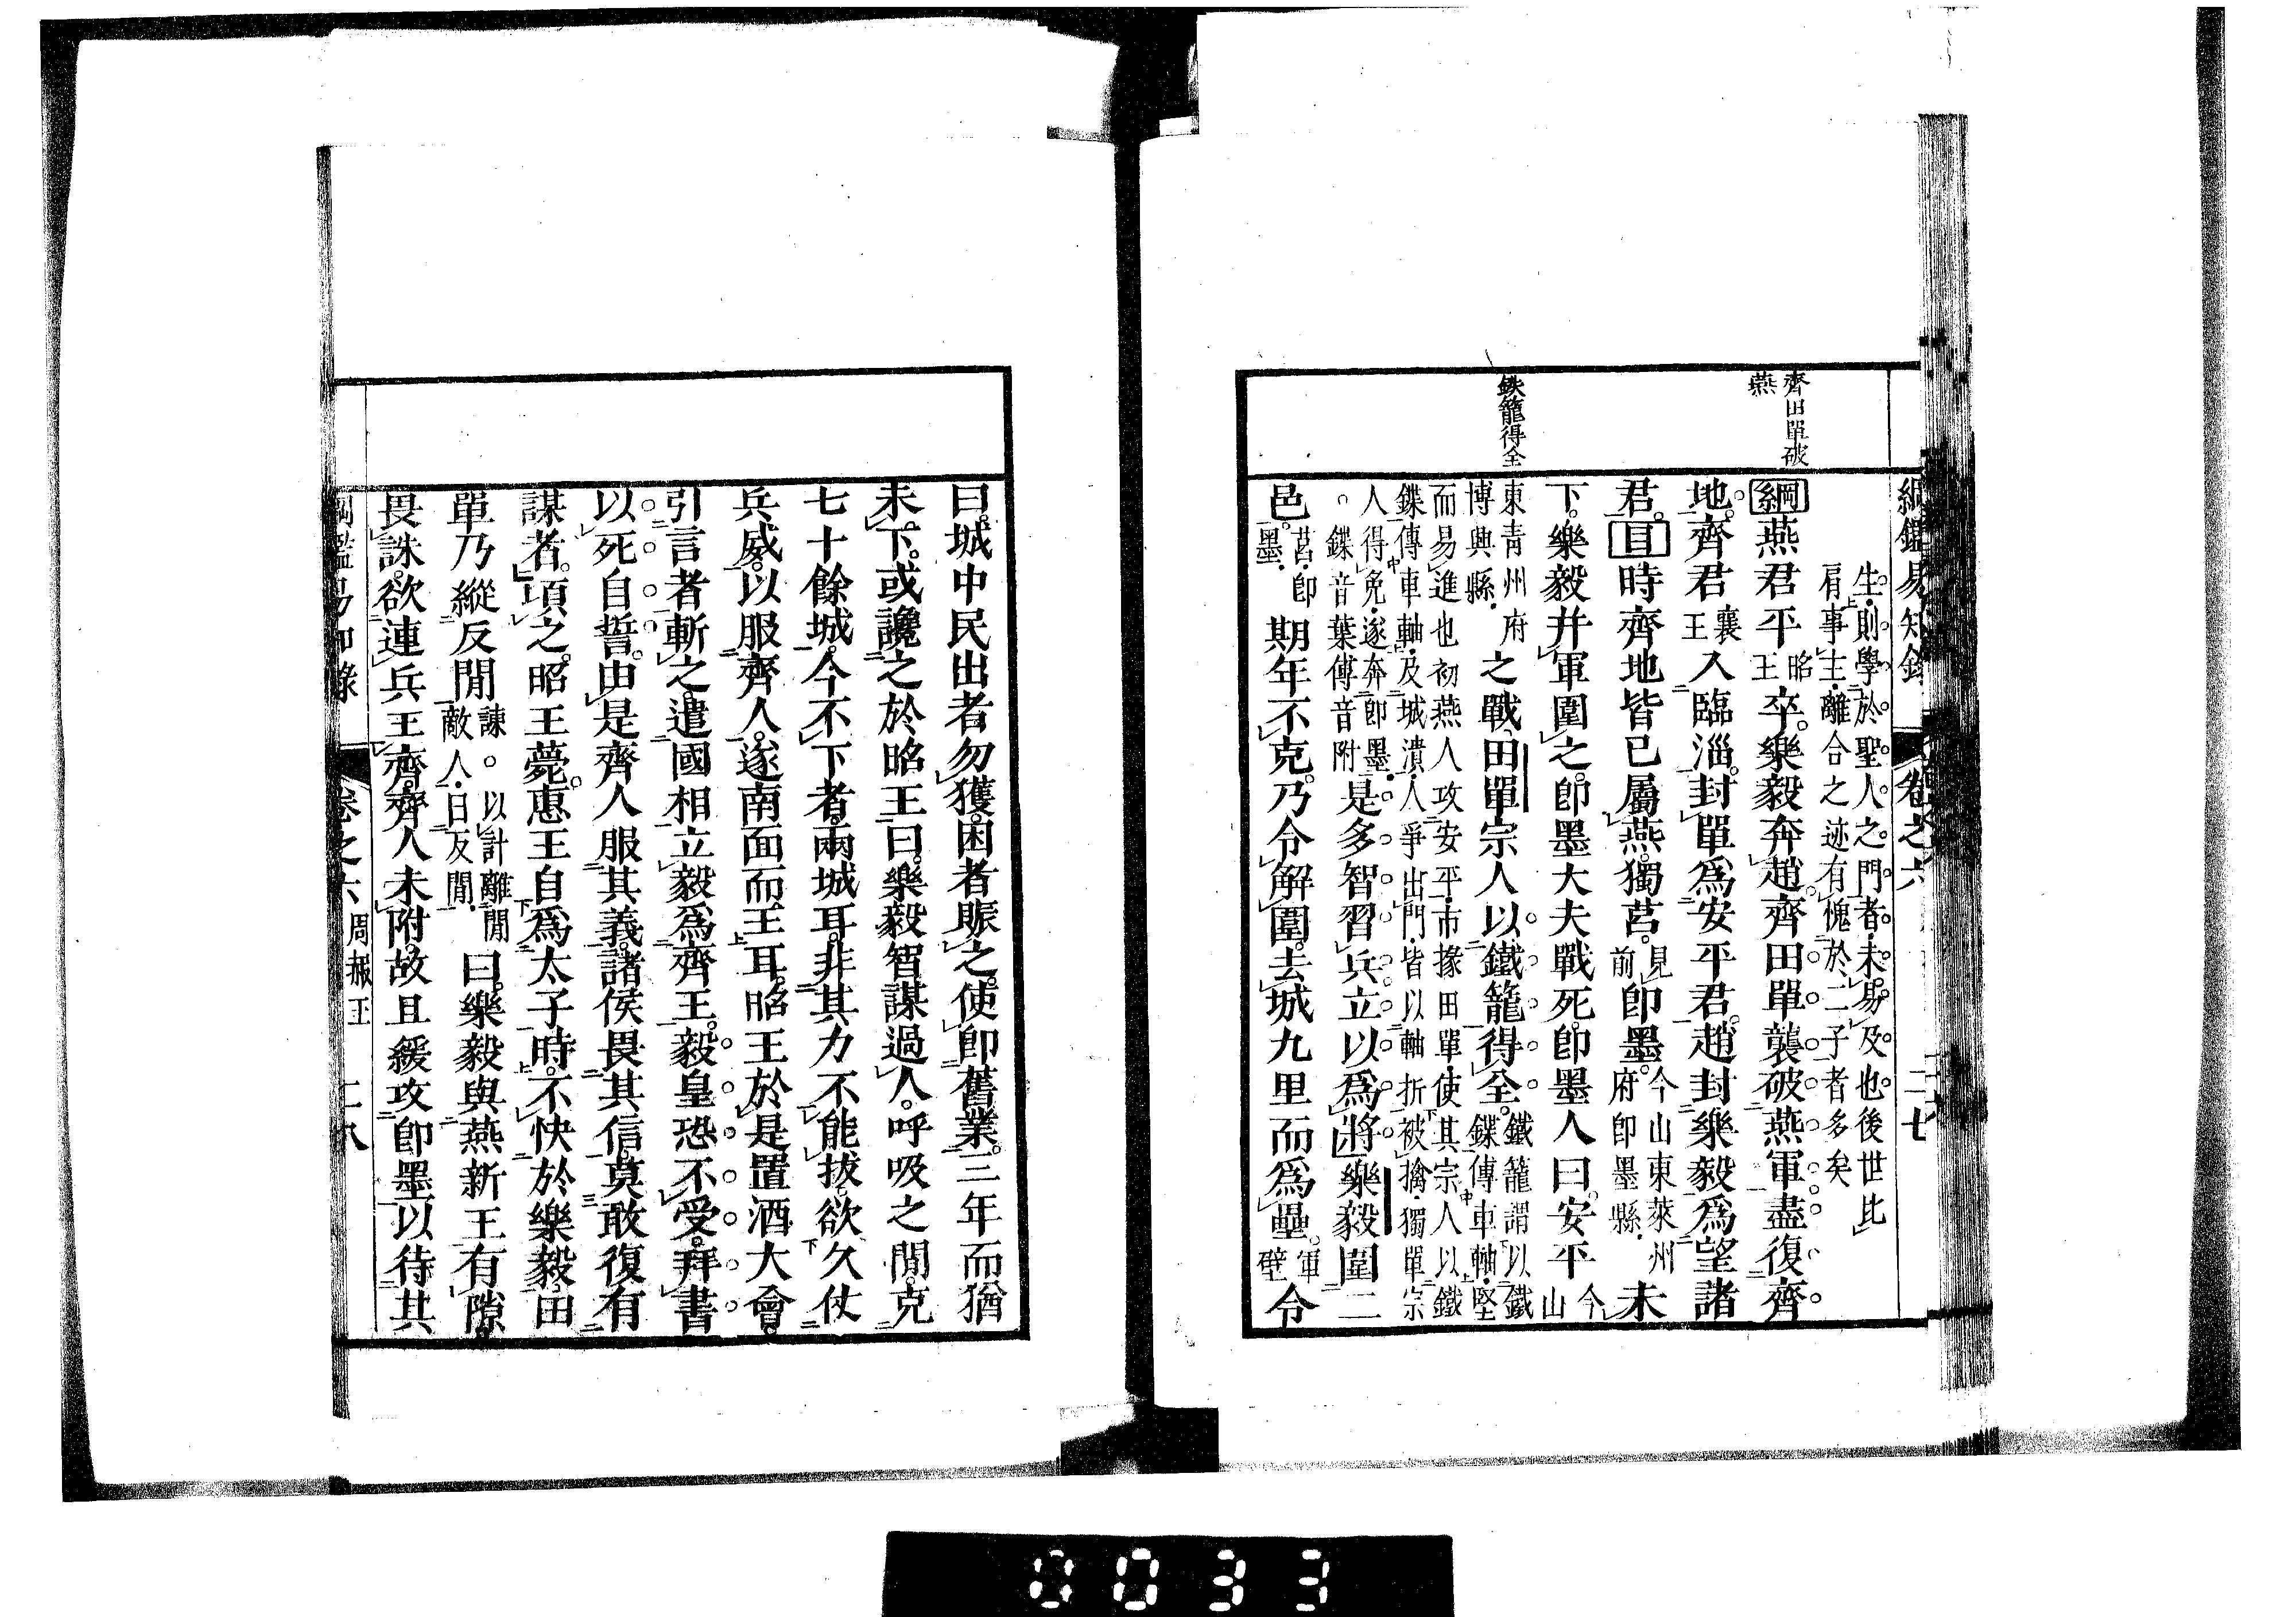 綱鑑易知錄 卷之六 二十七
齊田單破
燕
鉄籠得全
生。則學於聖人之門者。未易及也後世比
肩事主離合之迹有愧於二子者多矣
綱燕君平昭王卒。樂毅奔趙。齊田單襲破燕軍盡復齊
地。齊君襄王入臨淄。封單爲安平君。趙封樂毅爲望諸
君。目時齊地皆已屬燕。獨莒。見前卽墨。今山東萊州府卽墨縣未
下。樂毅幷軍圍之。卽墨大夫戰死。卽墨人曰。安平今山
東青州府博興縣之戰。田單宗人以鐵籠得全。鐵籠謂以鐵鍱傅車軸堅
而易進也初燕人攻安平市掾田單使其宗人以鐵
鍱傅車軸及城潰人爭出門皆以軸折被擒獨單宗
人得免遂奔卽墨。鍱音葉傅音附是多智習兵立以爲將樂毅圍二
邑。莒卽墨期年不克。乃令解圍。去城九里而爲壘。軍壁令
曰。城中民出者勿獲。困者賑之。使卽舊業。三年而猶
未下。或讒之於昭王曰。樂毅智謀過人。呼吸之閒。克
七十餘城。今不下者。兩城耳。非其力不能拔。欲久仗
兵威。以服齊人。遂南面而王耳。昭王於是置酒大會。
引言者斬之。遣國相立毅爲齊王。毅皇恐不受。拜書
以死自誓。由是齊人服其義。諸侯畏其信。莫敢復有
謀者。項之。昭王薨。惠王自爲太子時。不快於樂毅。田
單乃縱反閒諫。以計離閒敵人曰反閒曰。樂毅與燕新王有隙。
畏誅。欲連兵王齊。齊人未附。故且緩攻卽墨。以待其
綱鑑易知錄 卷之六 周赧王 二十八
0033